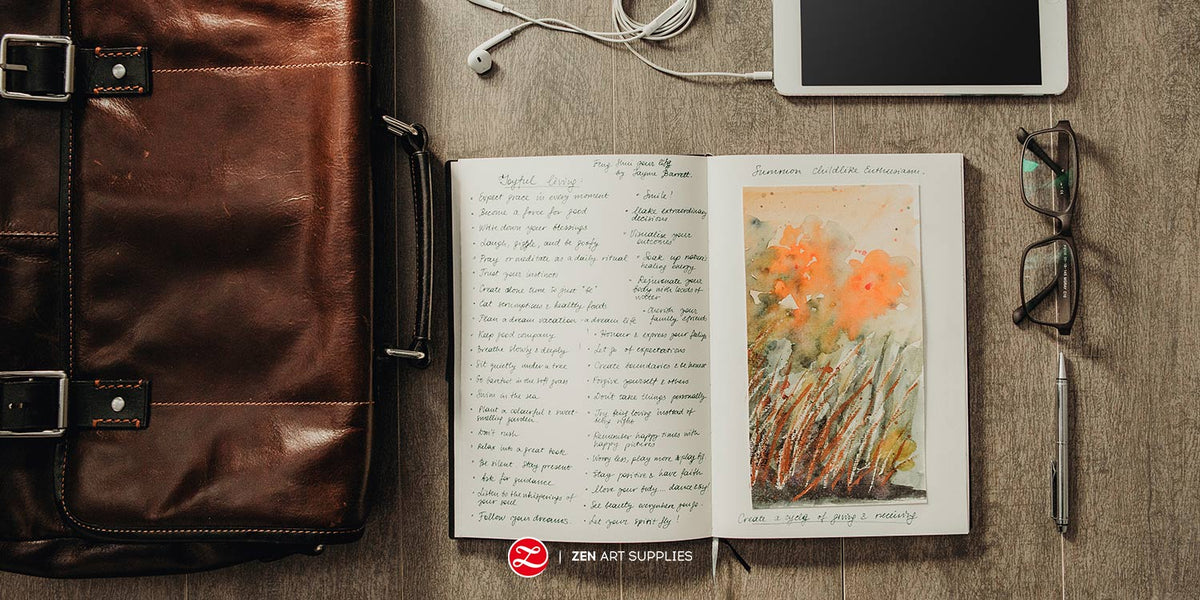 Feng Shui your life
by Jayne Barrett.
Joyful living:
• Expect grace in every moment
• Become a force for good
• Write down your blessings
• Laugh, giggle, and be goofy
• Pray or meditate as a daily ritual
• Trust your instincts
• Create alone time to just "be"
• Eat scrumptious & healthy foods
• Plan a dream vacation - a dream life
• Keep good company
• Breathe slowly & deeply
• Sit quietly under a tree
• Go barefoot in the soft grass
• Swim in the sea
• Plant a colourful & sweet-
smelling garden
• Don't rush
• Relax into a great book
• Be silent. Stay present
• Ask for guidance
• Listen to the whisperings of
your soul
• Follow your dreams.
• Smile!
• Make extraordinary
decisions
• Visualise your
outcomes
• Soak up nature's
healing energy
• Rejuvenate your
body with loads of
water
• Cherish your
family & friends
• Honour & express your feelings
• Let go of expectations
• Create boundaries & be honest
• Forgive yourself & others
• Don't take things personally
• Try being loving instead of
being right
• Remember happy times with
happy pictures
• Worry less, play more &
• Stay positive & have faith
• Love your body... dance &
• See beauty everywhere you go.
• Let your spirit fly!
Summon childlike Enthusiasm.
Create a cycle of giving & receiving
Z | ZEN ART SUPPLIES